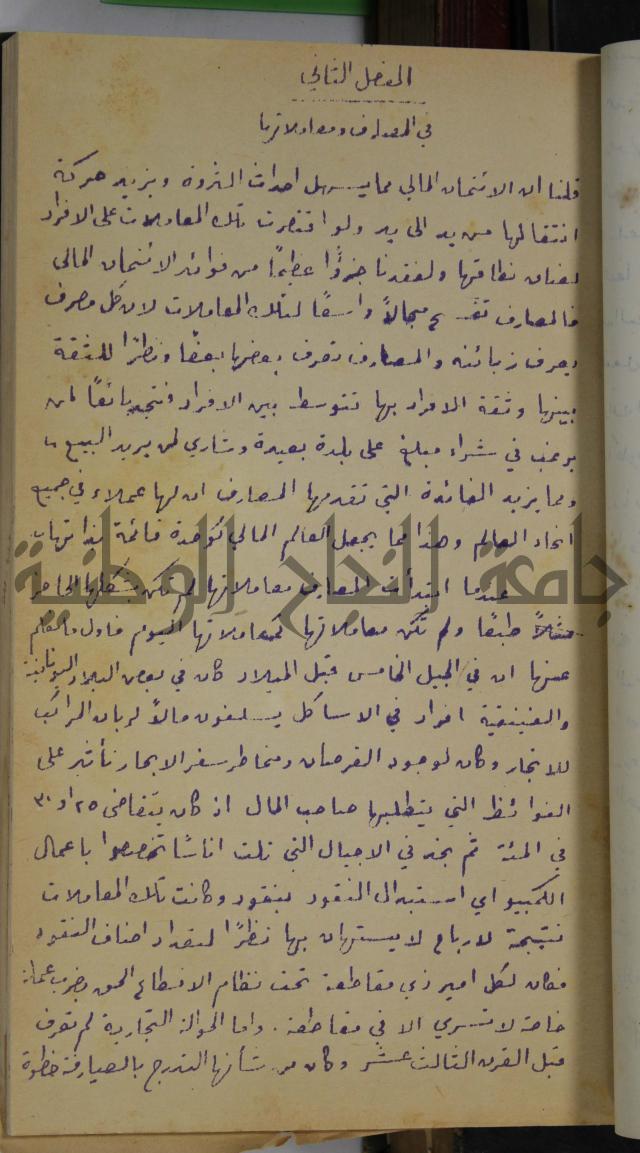 الفصل الثاني
في المصارف ومعاملاتها
قلنا ان الائتمان المالي مما يسهل احداث الثروة ويزيد حركة
انتقالها من يد الى يد ولو اقتصرت تلك المعاملات على الافراد
لضاق نطاقها ولفقدنا جزؤًا عظيمًا من فوائد الائتمان المالي
فالمصارف تفسح مجالاً واسعًا لتلك المعاملات لان كل مصرف
يعرف زبائنه والمصارف تعرف بعضها بعضًا ونظرًا للثقة
بينها وثقة الافراد بها تتوسط بين الافراد فتجد بائعًا لمن
يرغب في شراء مبلغ على بلدة بعيدة وشاري لمن يريد البيع
ومما يزيد الفائدة التي تقدمها المصارف ان لها عملاء في جميع
انحاء العالم وهذا مما يجعل العالم المالي كوحدة قائمة بذاتها
عندما ابتدأت المصارف معاملاتها لم تكن بشكلها الحاضر
مثلاً طبعًا ولم تكن معاملاتها كمعاملاتها اليوم فاول ما نعلم
عنها ان في الجيل الخامس قبل الميلاد كان في بعض البلاد اليونانية
والفينيقية افراد في الاساكل يسلفون مالاً لربان المراكب
للاتجار وكان لوجود القرصان ومخاطر سفر الابحار تأثير على
الفوائظ التي يتطلبها صاحب المال اذ كان يتقاضى ٢٥ او ٣٠
في المئة ثم نجد في الاجيال التي تلت اناسًا تخصصوا باعمال
الكمبيو اي استبدال النقود بنقود وكانت تلك المعاملات
نتيجة لارباح لا يستهان بها نظرًا لتعداد اصناف النقود
فكان لكل امير ذي مقاطعة تحت نظام الاقطاع الحق بضرب عملة
خاصة لا تسري الا في مقاطعته. واما الحوالة التجارية لم تعرف
قبل القرن الثالث عشر وكان من شأنها التدرج بالصيارفة خطوة
جامعة النجاح الوطنية